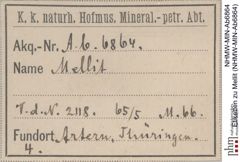 K. k. naturh. Hofmus. Mineral.-petr. Abt.
Akq.-Nr. A.b. 6864.
Name Mellit
V.d.N. 2118. 65/5 M. 66.
Fundort Artern, Thüringen.
4.
NHMW-MIN-Ab6864
Etikett zu Mellit (NHMW-MIN-Ab6864)
nhm